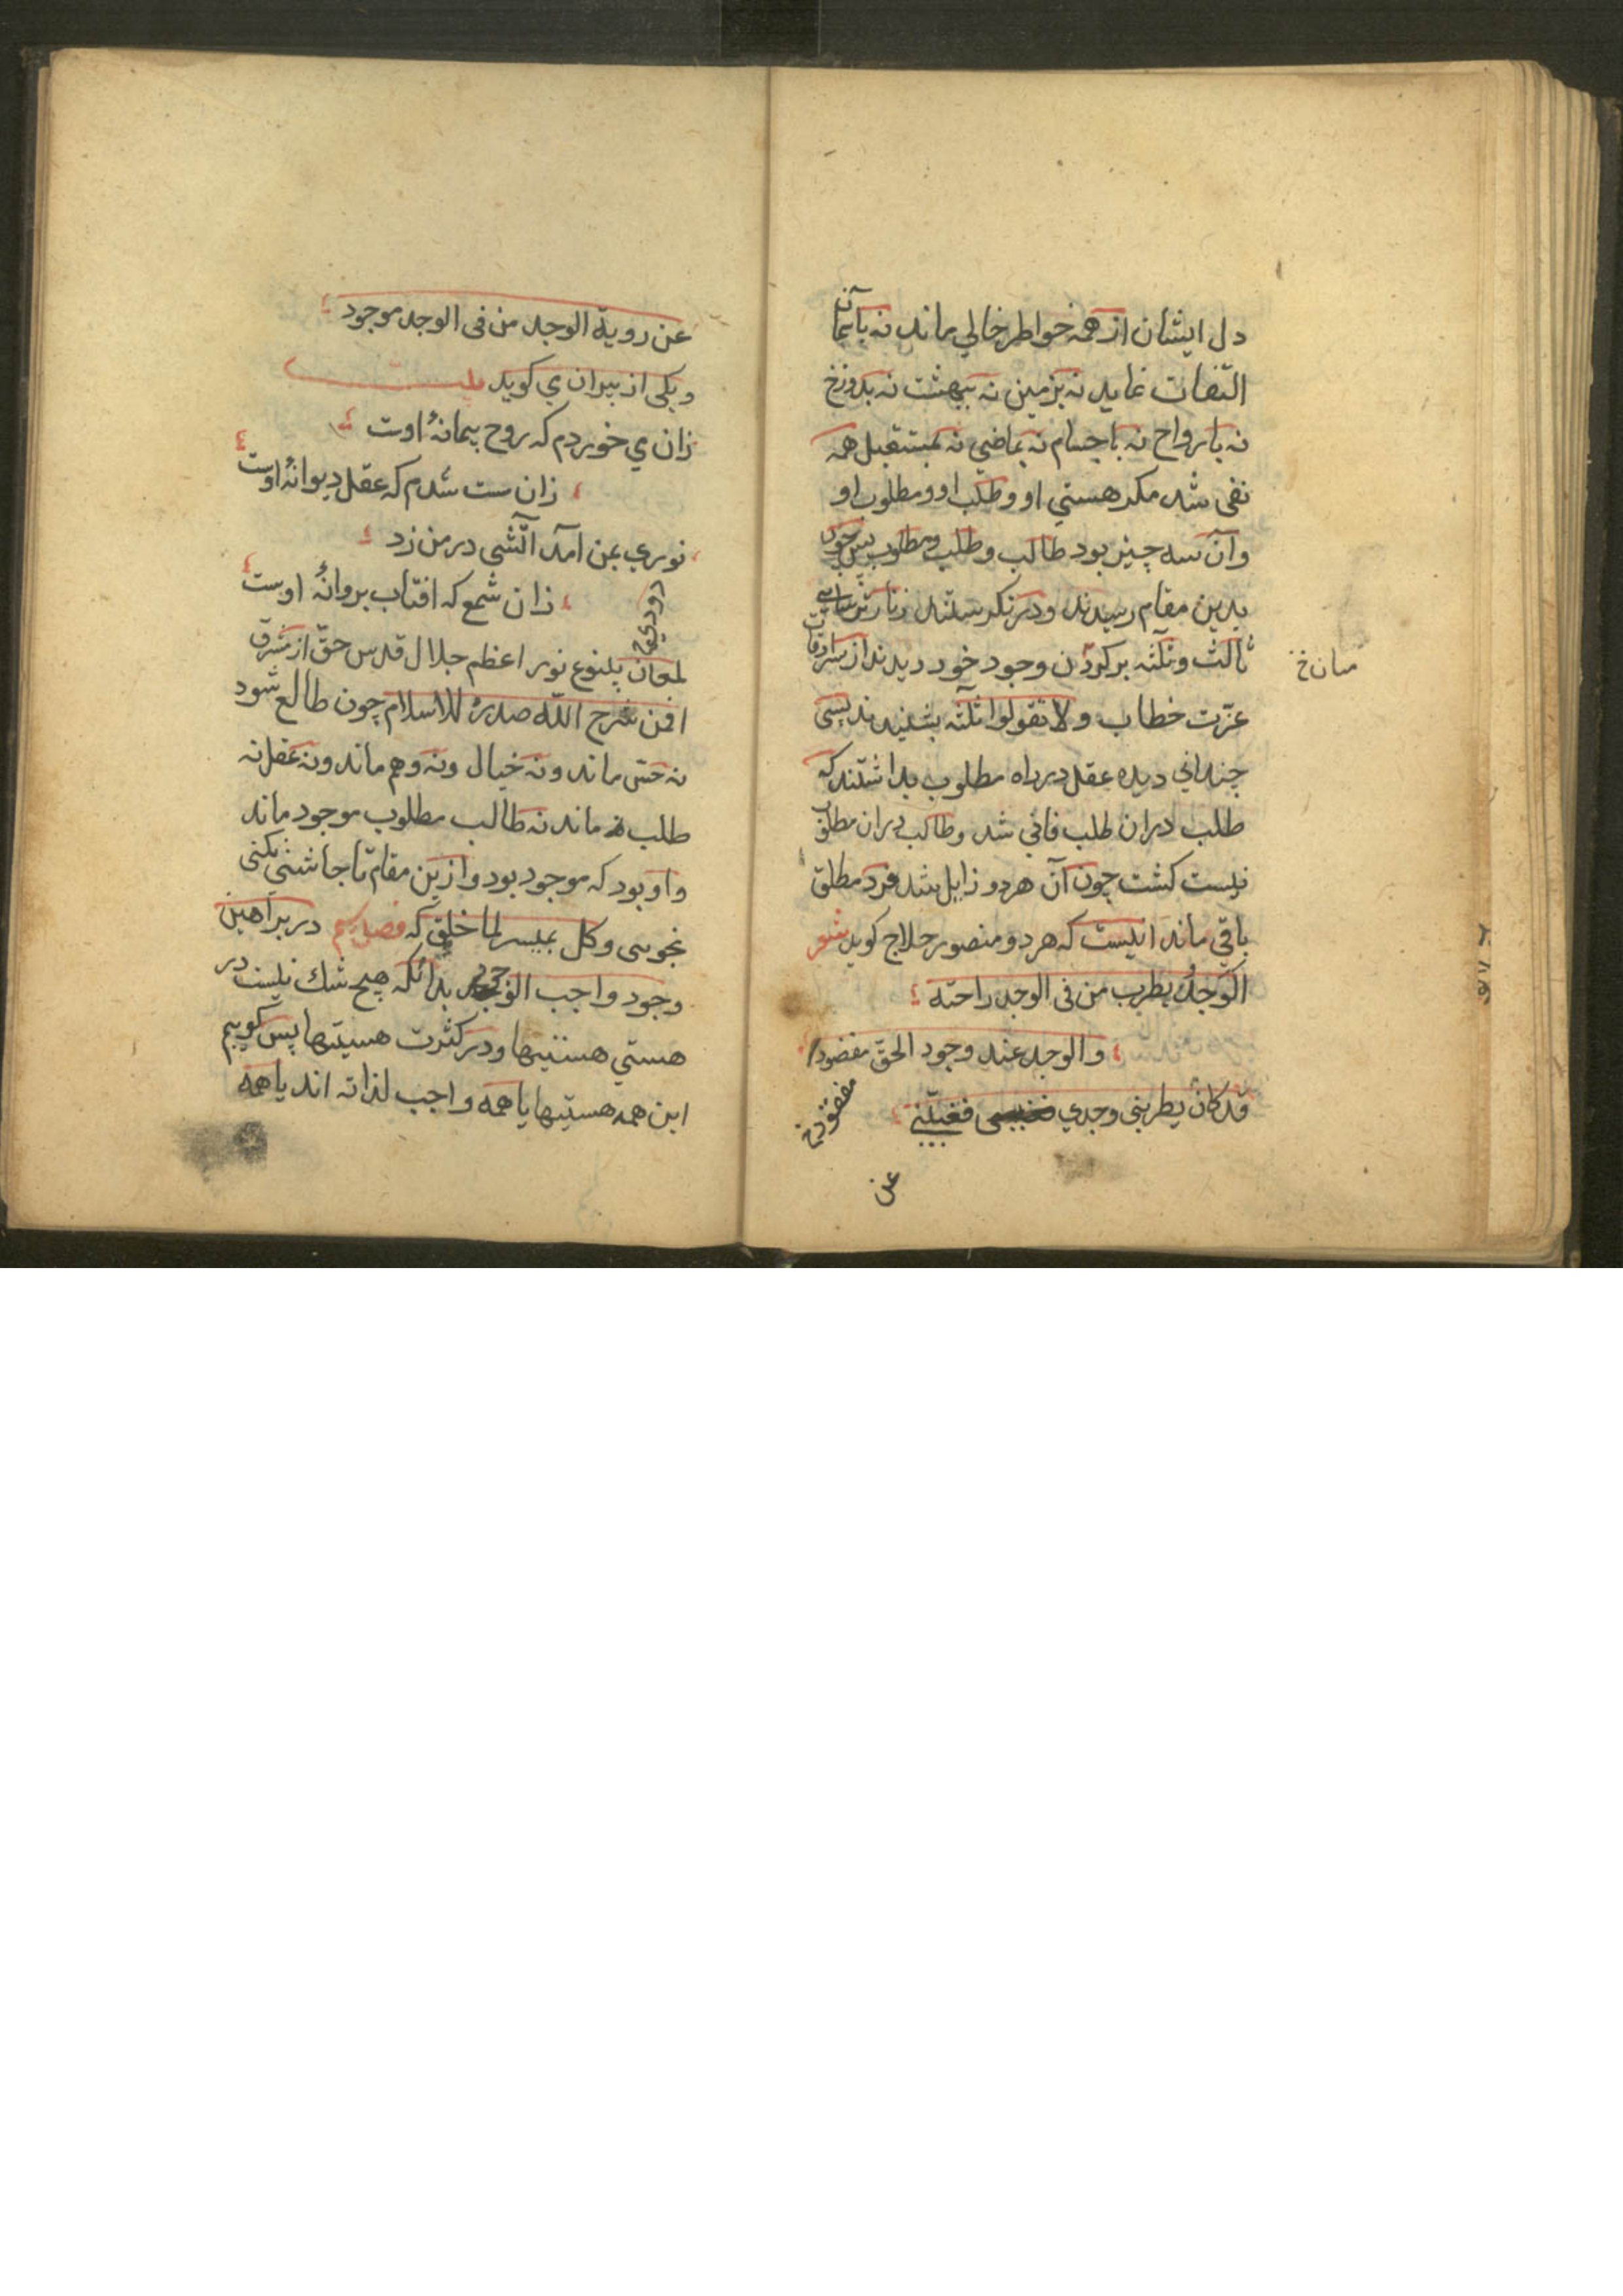 دل ایشان از همه خواطر خالی ماند نه بآسمان
التفات نماید نه بزمین نه ببهشت نه بدوزخ
نه بارواح نه باجسام نه بماضی نه بمستقبل همه
نفی شد مکر هستی او و طلب او و مطلوب او
وآن سه چیز بود طالب و طلب و مطلوب پس چون
بدین مقام رسیدند و درنکرستند زنار
ثالث ونلثه بر کردن وجود خود دیدند از سرادقات
عزت خطاب ولا تقولوا ثلثه بشنیدند پس
چندانی دیده عقل در راه مطلوب بداشتند که
طلب دران طلب فانی شد و طالب دران مطلوب
نیست کشت چون آن هر دو زایل شد فرد مطلق
باقی ماند اینست که هر دو منصور حلاج کوید شعر
الوجد یطرب من فی الوجد راحته
والوجد عند وجود الحق مقصود
قد کان یطربنی وجدی فغیبنی
مفقود خ
عن
میان خ
عن رویة الوجد من فی الوجد موجود
ویکی از پیران می کوید بیت
زان می خوردم که روح پیمانهٔ اوست
زان مست شدم که عقل دیوانهٔ اوست
نوری بمن آمد آتشی در من زد
زان شمع که افتاب پروانهٔ اوست
دودی خ
لمعان ینبوع نور اعظم جلال قدس حق از مشرق
افمن شرح الله صدره للاسلام چون طالع شود
نه حس ماند و نه خیال ونه وهم ماند و نه عقل نه
طلب ماند نه طالب مطلوب موجود ماند
واو بود که موجود بود و ازین مقام تا چاشنی نکنی
نجوسی وکل میسر لما خلق که فصل در براهین
وجود واجب الوجود بدانکه هیچ شک نیست در
هستی هستیها و در کثرت هستیها پس کوییم
این همه هستیها یا همه واجب لذاته اند یا همه